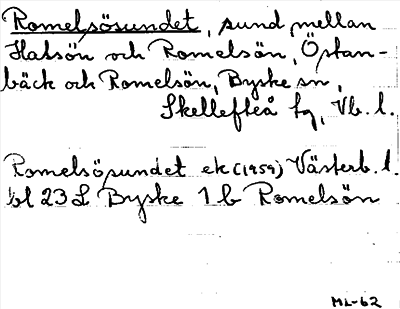 Romelsösundet, sund mellan
Hatsön och Romelsön, Östan-
bäck och Romelsön, Byske sn,
Skellefteå tg, Vb. l.
Romelsösundet ek (1959) Västerb. l.
bl 23 L Byske 1 b Romelsön
ML-62